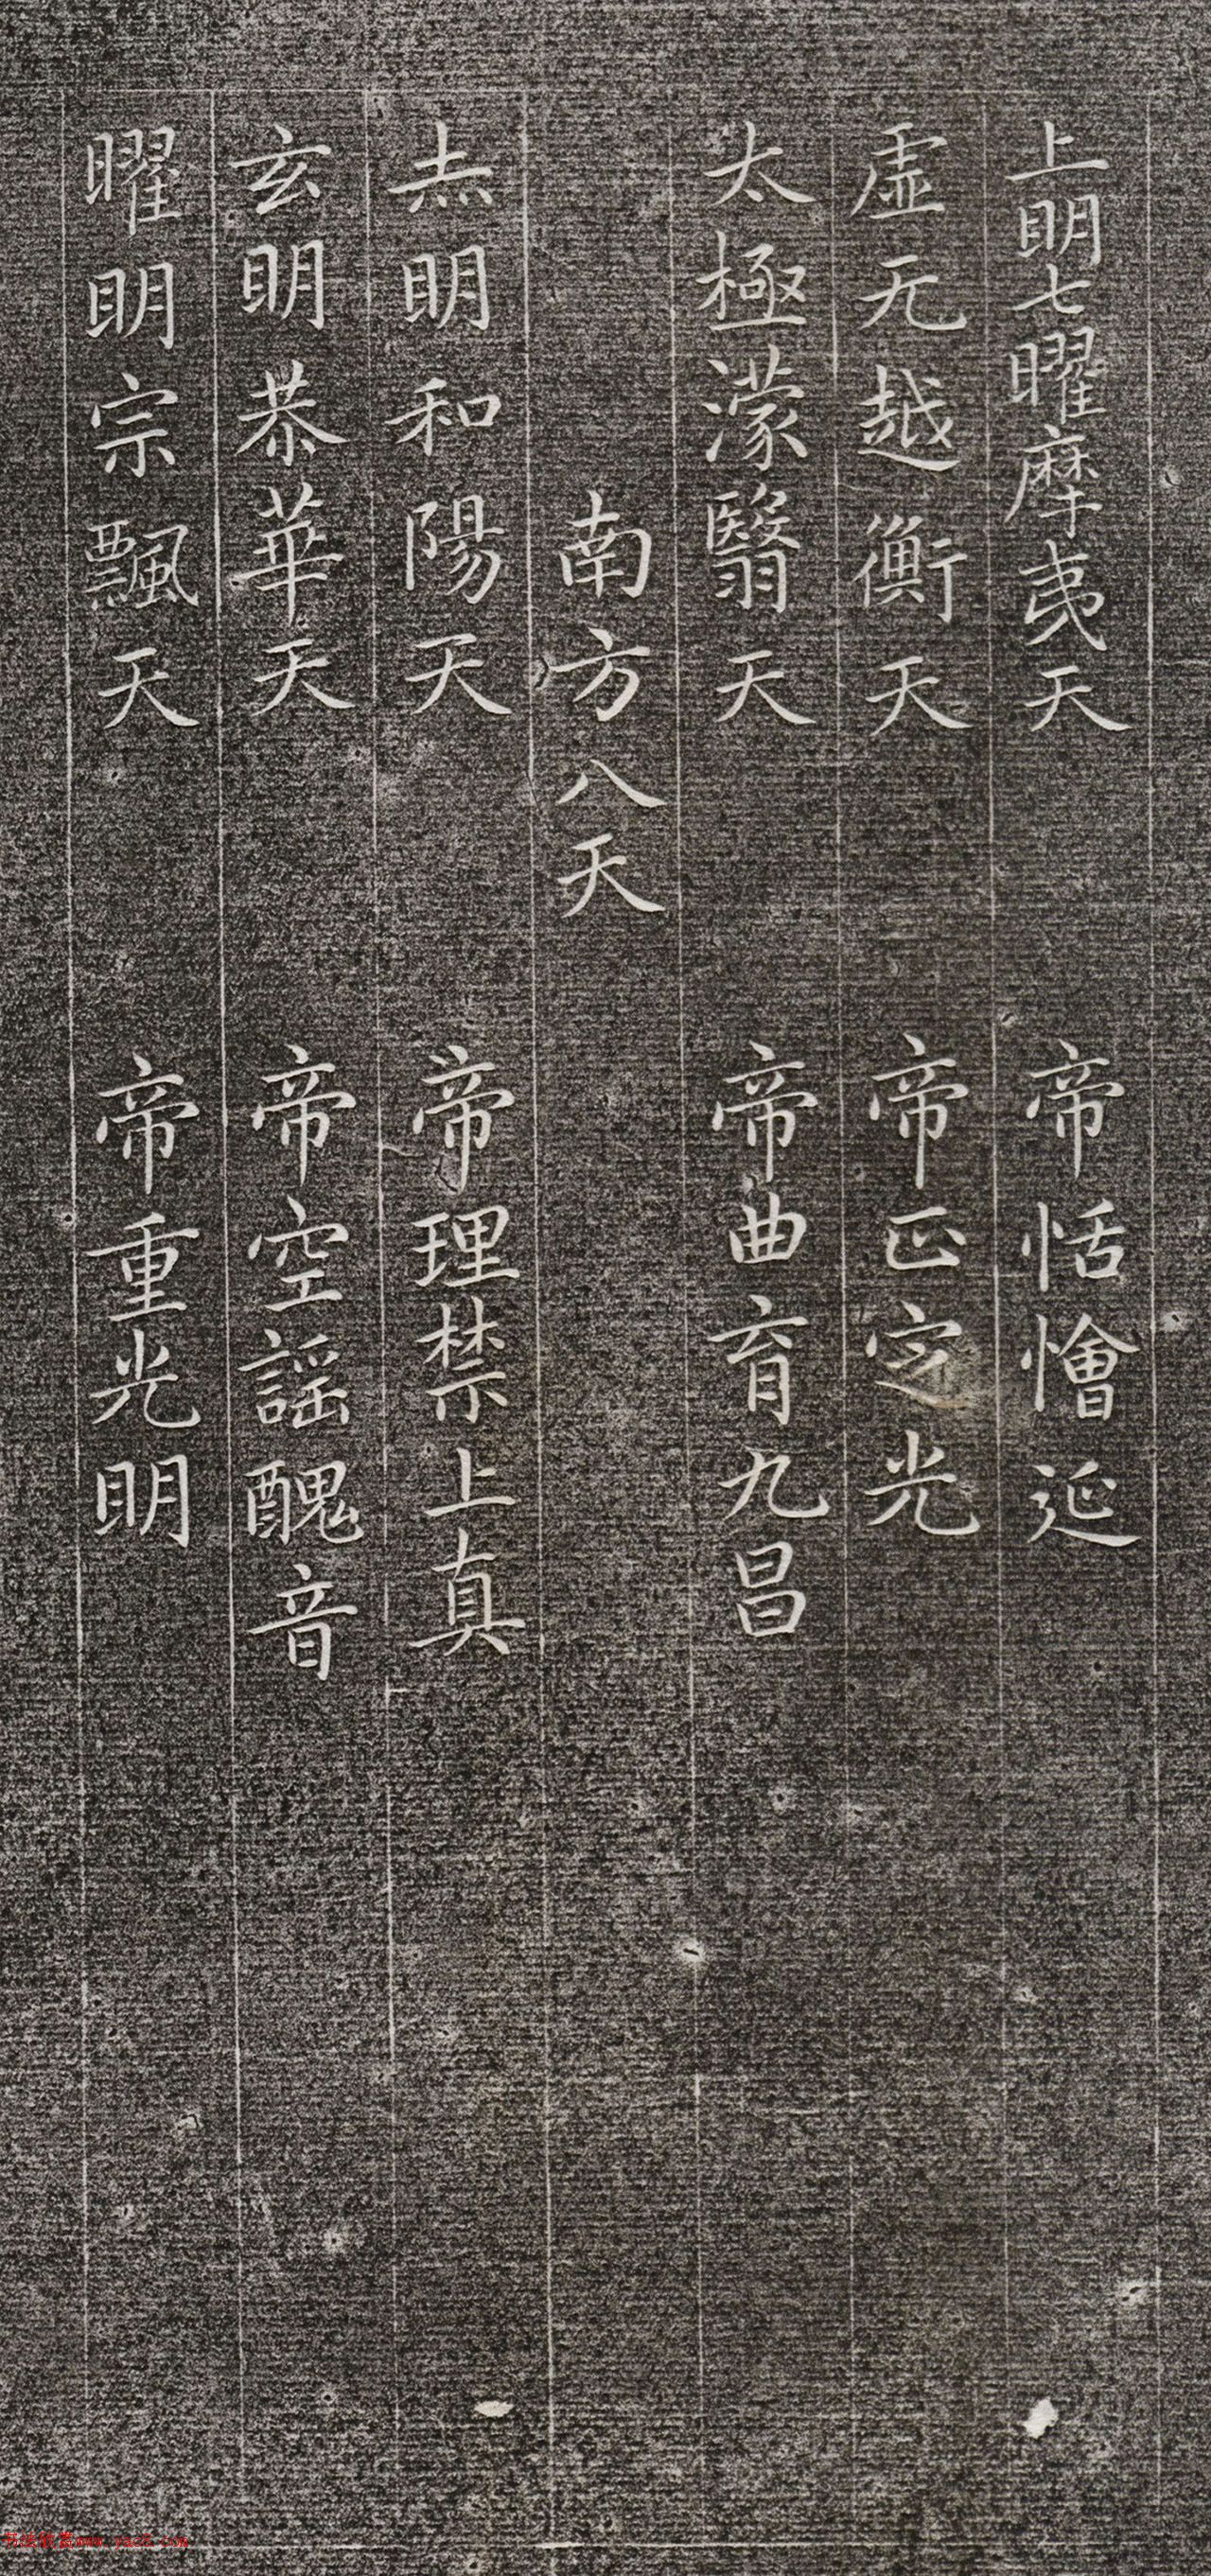 上明七曜摩夷天 帝恬憺延
虚无越衡天 帝正定光
太極濛翳天 帝曲育九昌
南方八天
赤明和陽天 帝理禁上真
玄明恭華天 帝空謡醜音
曜明宗飄天 帝重光明